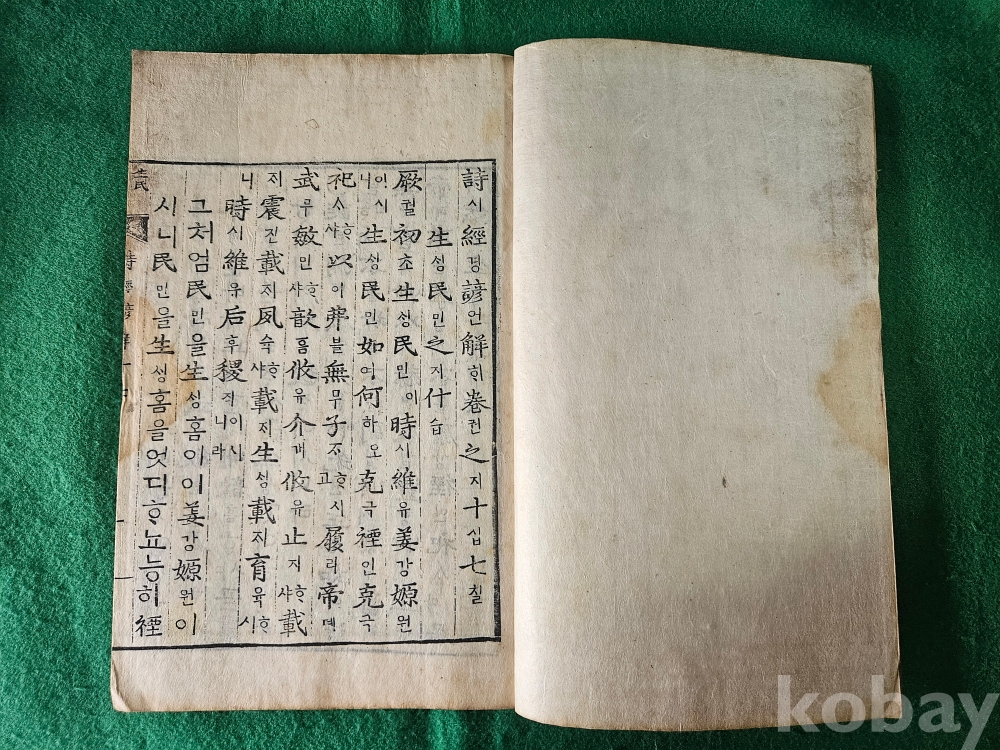 詩시經경諺언解ᄒᆡ卷권之지十십七칠
生ᄉᆡᆼ民민之지什습
厥궐初초生ᄉᆡᆼ民민이時시維유姜강嫄원
이시니生ᄉᆡᆼ民민如여何하오克극禋인克극
祀ᄉᆞᄒᆞ샤以이弗블無무子ᄌᆞᄒᆞ시고履리帝뎨
武무敏민ᄒᆞ샤歆흠攸유介개攸유止지ᄒᆞ샤載
ᄌᆡ震진載ᄌᆡ夙숙ᄒᆞ샤載ᄌᆡ生ᄉᆡᆼ載ᄌᆡ育육ᄒᆞ시
니時시維유后후稷직이시니라
그처엄民민을生ᄉᆡᆼ홈이이姜강嫄원이
시니民민을生ᄉᆡᆼ홈을엇디ᄒᆞ뇨능히禋
kobay